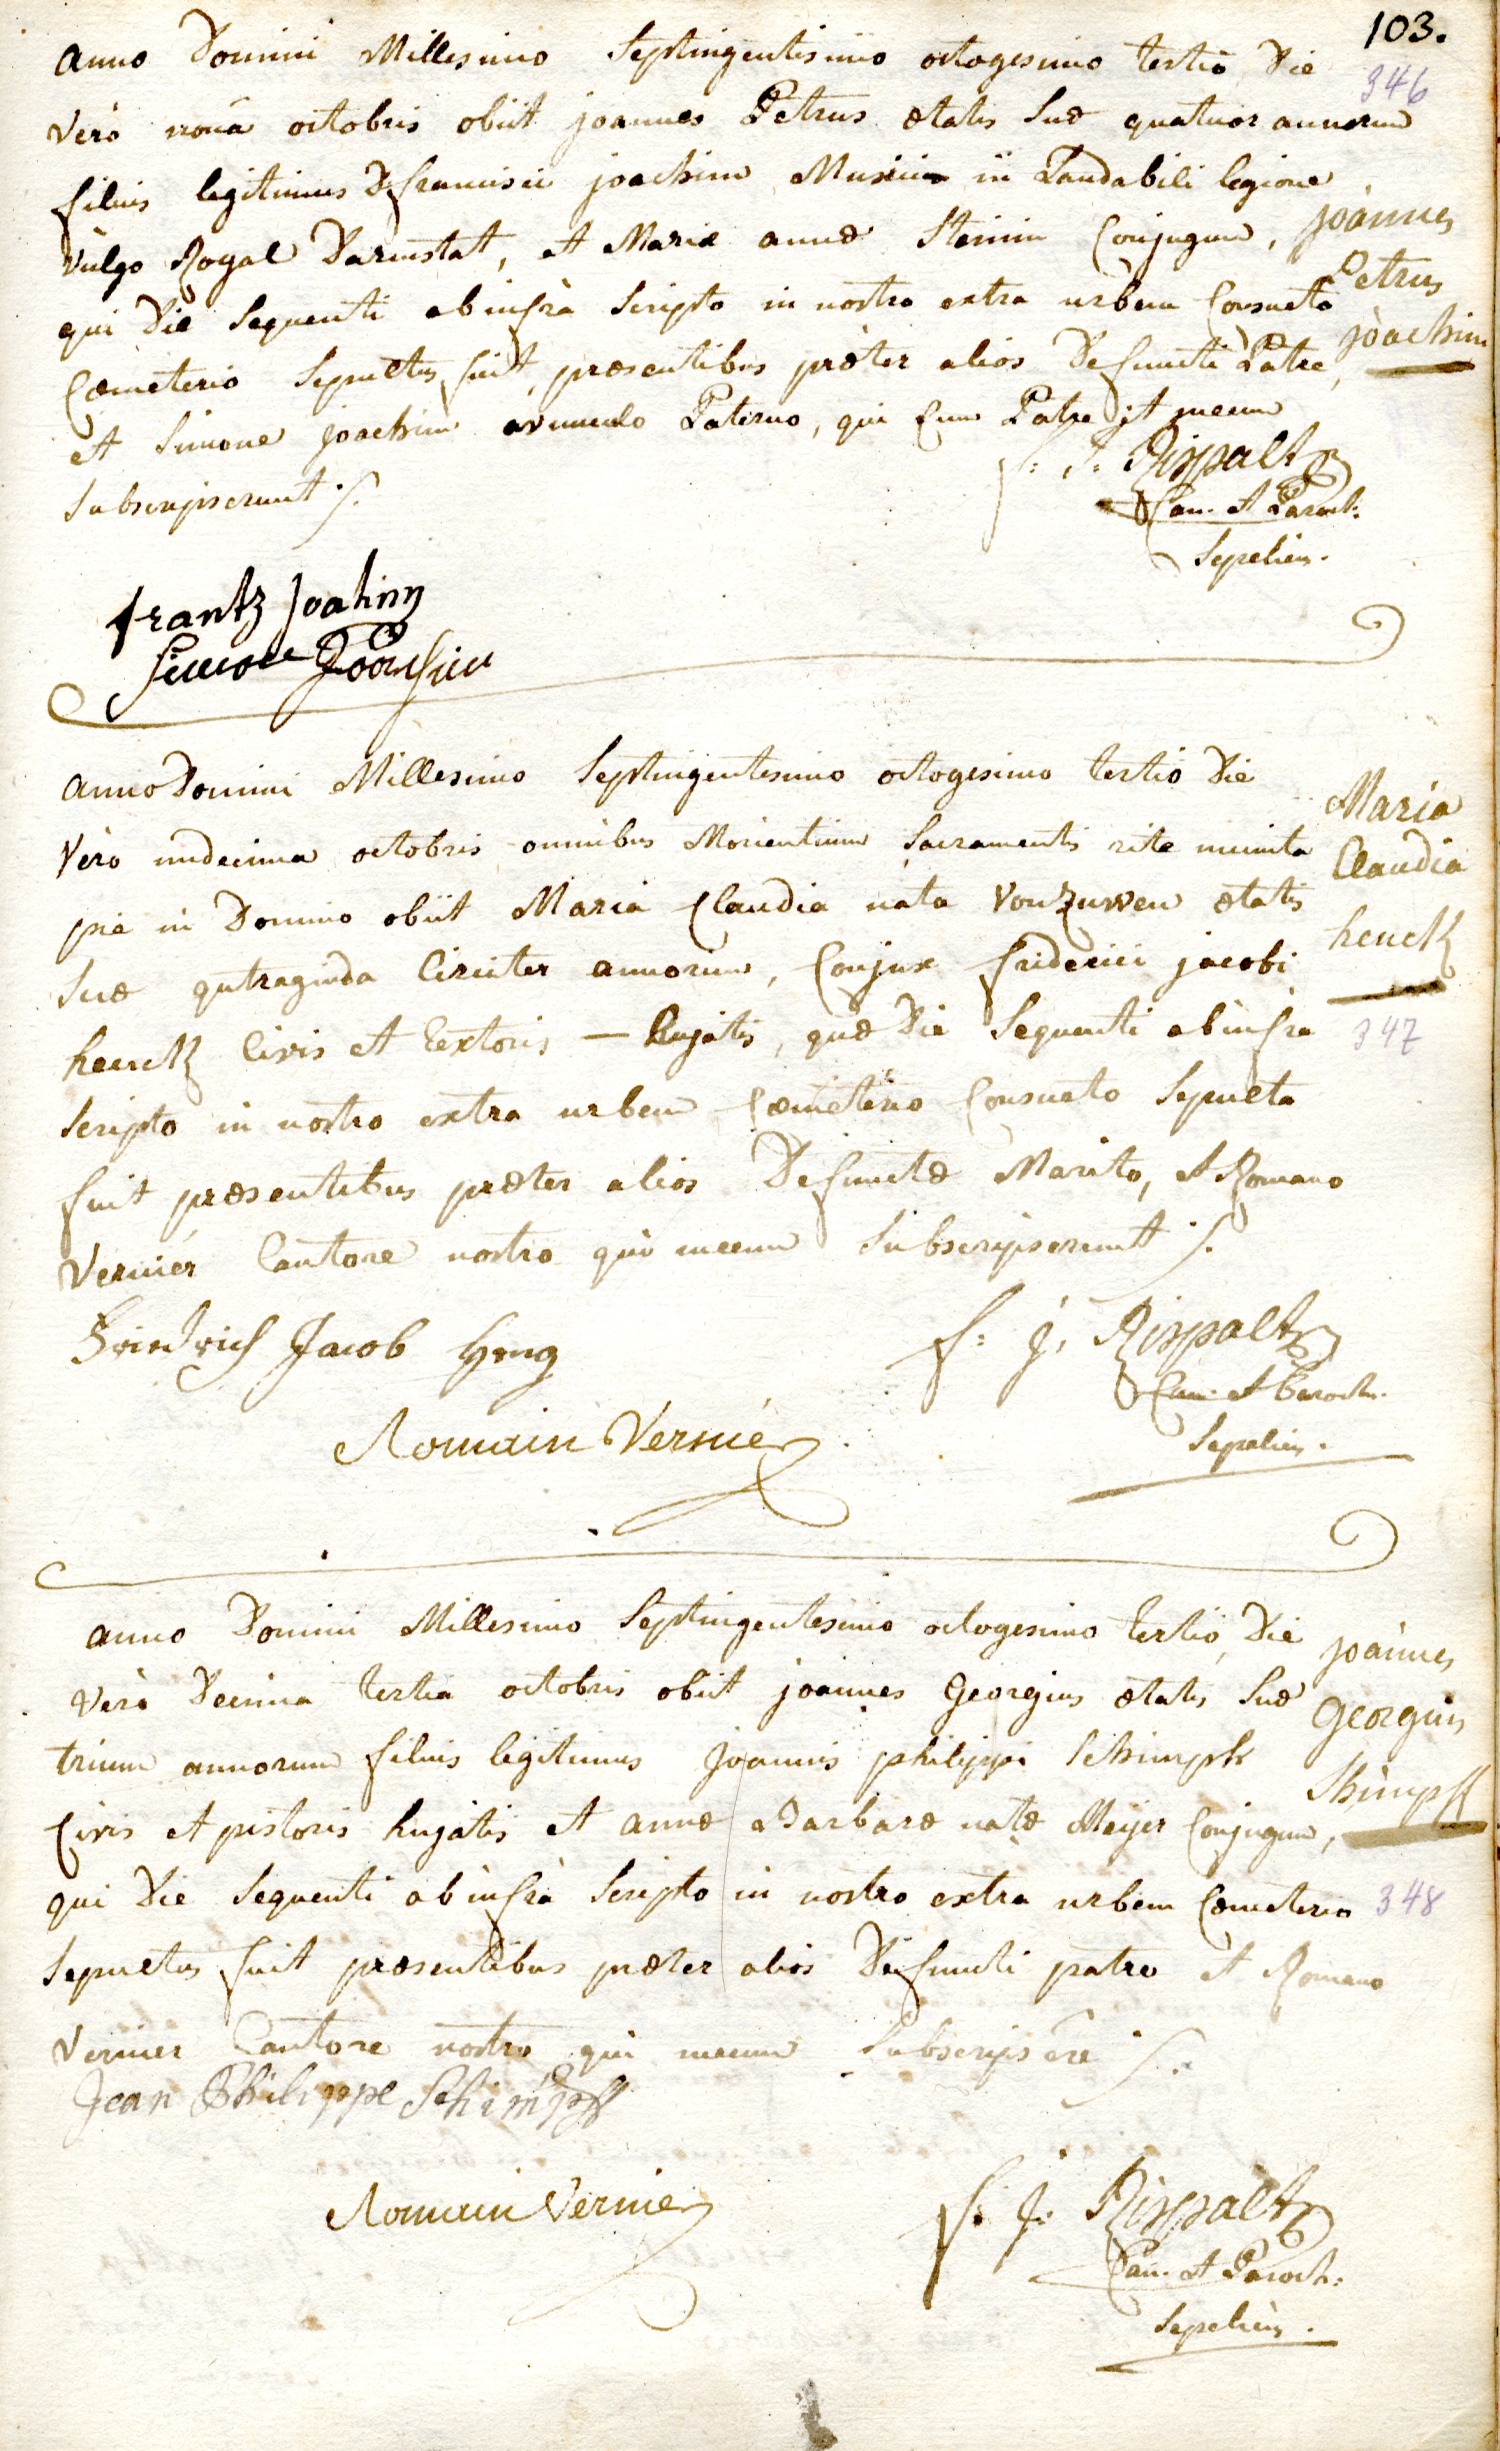 103.
anno Domini Millesimo Septingentisimo octogesimo tertio Die
346
verò nonâ octobris obiit joannes Petrus ætatis Suæ quatuor annorum
filius legitimus D francisci joachim Musici in Laudabili legione
vulgo Royal Darmstat, et Mariæ annæ Steinin Conjugum,
joannes
Petrus
joachim
qui Die Sequenti ab infrà Scripto in nostro extra urbem Consueto
Cœmeterio Sepultus fuit, præsentibus præter alios Defuncti Patre,
et Simone joachim avunculo Paterno, qui Cum Patre et mecum
Subscripserunt ./.
f: J: Rispalt
Can. et Paroch:
Sepeliens.
frantz Joahim
Simon Joachim
anno Domini Millesimo Septingentesimo octogesimo tertio Die
Verò undecima octobris omnibus Morientium Sacramentis rite munita
pie in Domino obiit Maria Claudia nata Vonzuwen ætatis
Suæ qutraginda Circiter annorum, Conjux friderici jacobi
henck Civis et textoris — hujatis, quæ Die Sequenti ab infra
Maria
Claudia
henck
347
Scripto in nostro extra urbem Cœmeterio Consueto Sepulta
fuit præsentibus præter alios Defunctæ Marito, et Romano
Vernier Cantore nostro qui mecum Subscripserunt ./.
Friedrich Jacob Heng
f: J: Rispalt
Can. et Paroch.
Sepeliens.
Romain Vernier
anno Domini Millesimo Septingentesimo octogesimo tertio, Die
verò Decima tertia octobris obiit joannes Georgius ætatis Suæ
trium annorum filius legitimus Joannis philippi Schimpff
Civis et pistoris hujatis et annæ Barbaræ natæ Meijer Conjugum,
joannes
Georgius
Shimpff
qui Die Sequenti ab infrà Scripto in nostro extra urbem Cœmeterio
348
Sepultus fuit præsentibus præter alios Defuncti patre et Romano
Vernier Cantore nostro qui mecum Subscripsêre ./.
Jean Philippe Schimpff
Romain Vernier
f: J: Rispalt
Can. et Paroch:
Sepeliens.